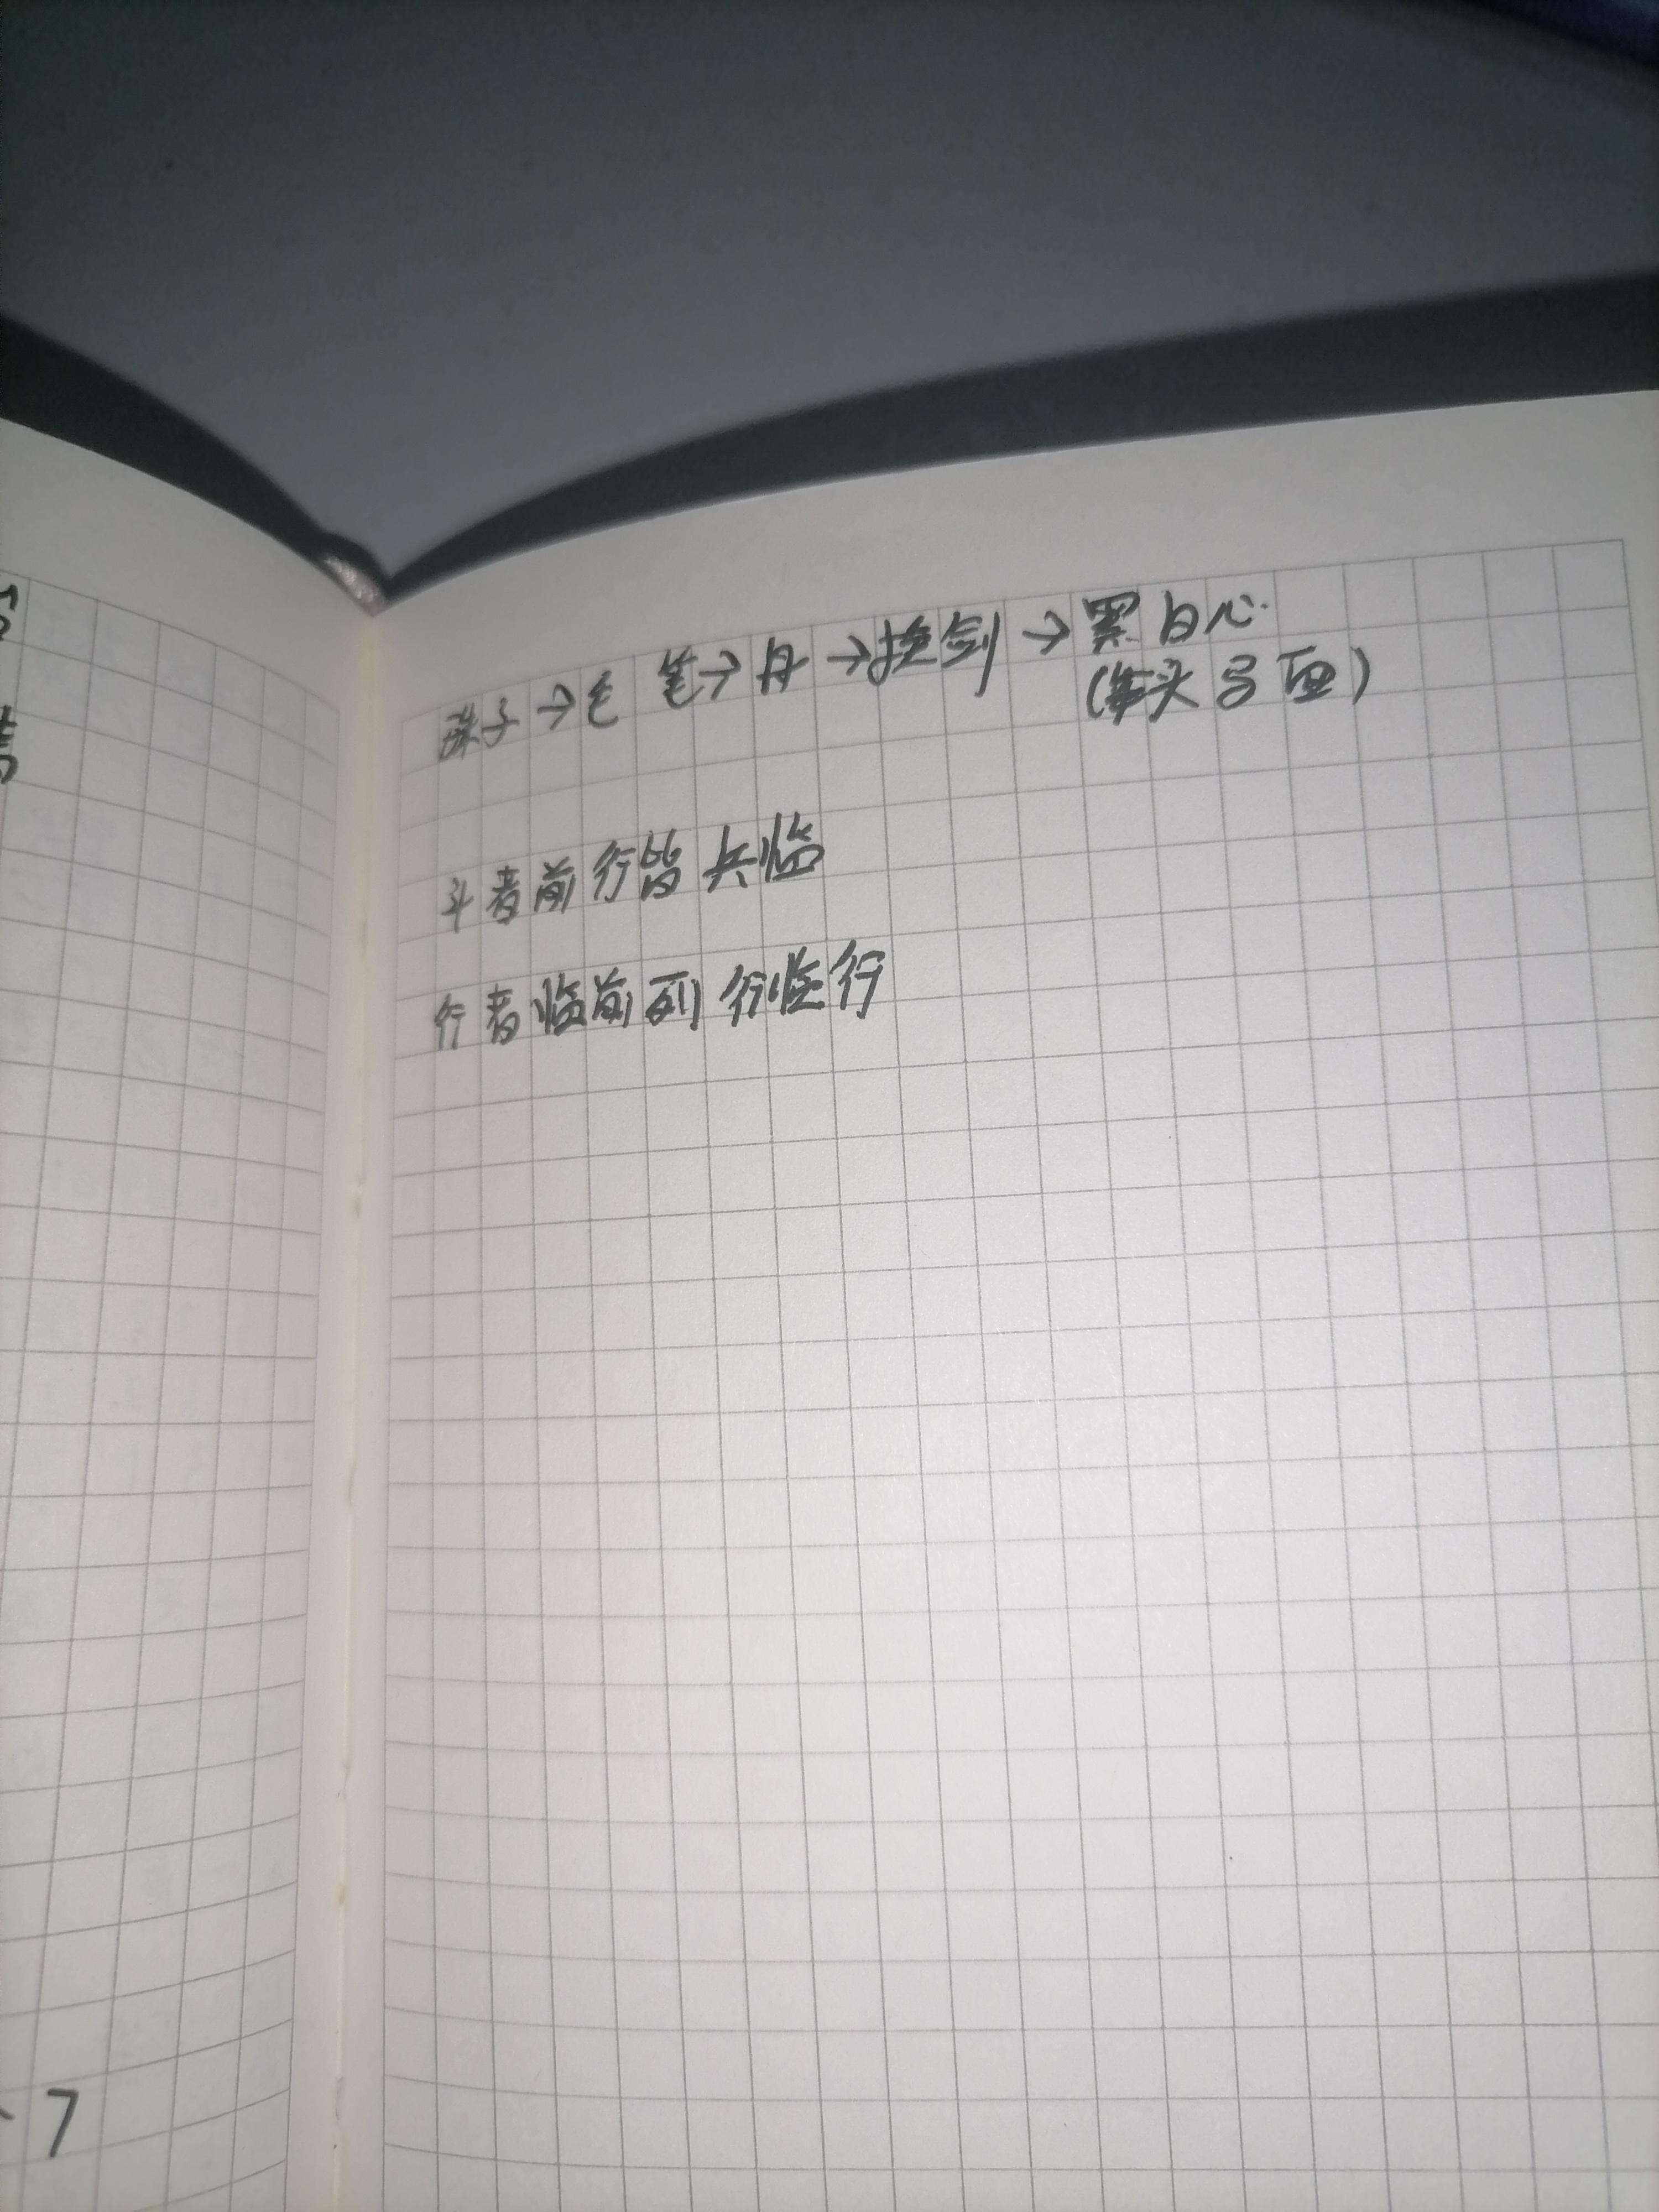 珠子→毛笔→丹→换剑→黑白心
(笔头ㄢ面)
斗者前行皆兵临
行者临前列行临行
7